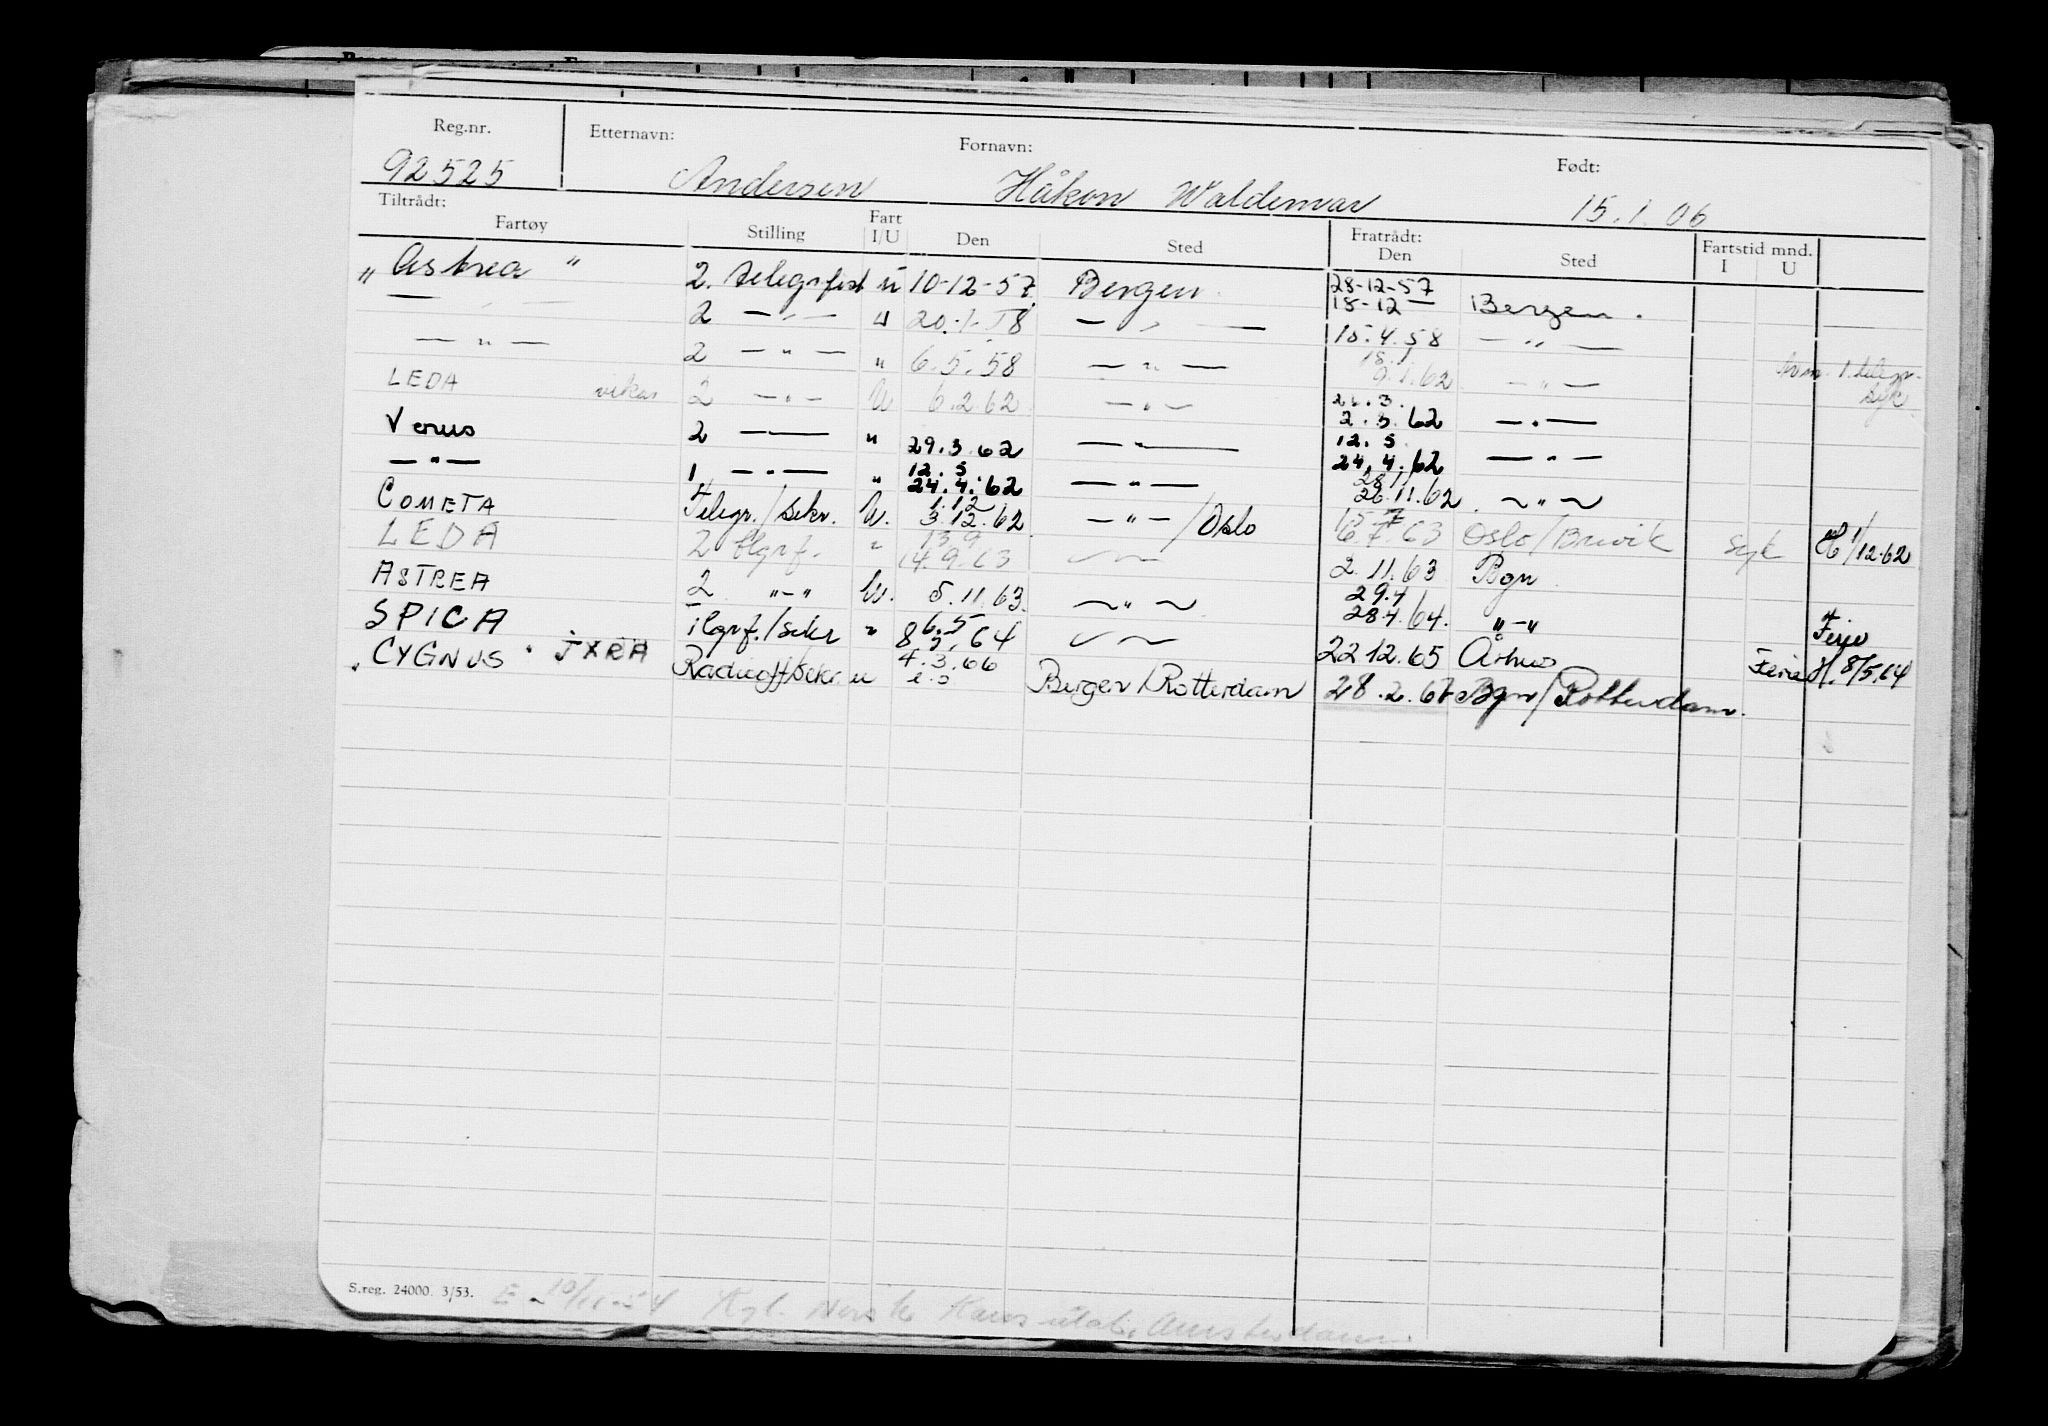 Reg.nr. Etternavn: Fornavn: Født:
92525 Andersen Håkon Waldemar 15.1.06
Tiltrådt: Fratrådt: Fartstid mnd.
Fartøy Stilling Fart I/U Den Sted Den Sted I U
"Astrea" 2. telegrfist u 10-12-57 Bergen 28-12-57
18-12 — Bergen.
— " — 2 — " — " 20.1.58 — " — 15.4.58 — " —
— " — 2 — " — " 6.5.58 — " — 18.1.
9.1.62 — " — 1. telegr.
LEDA vikar 2 — " — U 6.2.62 — " — 2.3.62 — " — syk
Venus 2 — " — " 29.3.62 — " — 12.5
24.4.62 — " —
— " — 1 — " — " 12.5
24.4.62 — " — 28.11
26.11.62 — " —
COMETA Telegr./sekr. U. 1.12
3.12.62 — " — / Oslo 15.7
6.7.63 Oslo/Brevik syk H 1/12-62
LEDA 2 tlgrf. " 13.9
14.9.63 — " — 2.11.63 Bgn
ASTREA 2 "-" U. 5.11.63 — " — 29.4
28.4.64. "-" Ferie
SPICA Tlgrf./sekr " 6.5
8.5.64 — " — 22 12.65 Århus Ferie H. 8/5.64
"CYGNUS" JXRA Radioff/sekr. u 4.3.66 Bergen/Rotterdam 28.2.67 Bgn/Rotterdam.
S.reg. 24000. 3/53. Kgl. Norske Amsterdam.